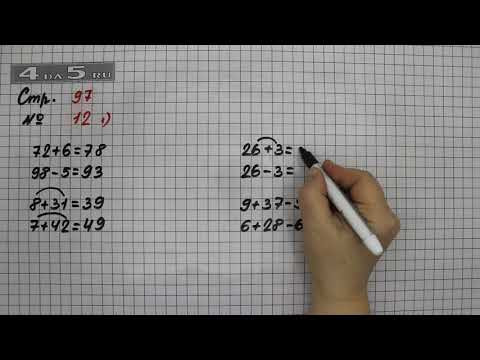 4 DA 5 RU
Стр. 97
№ 12 1)
72+6=78
98-5=93
8+31=39
7+42=49
26+3=
26-3=
9+37-
6+28-6